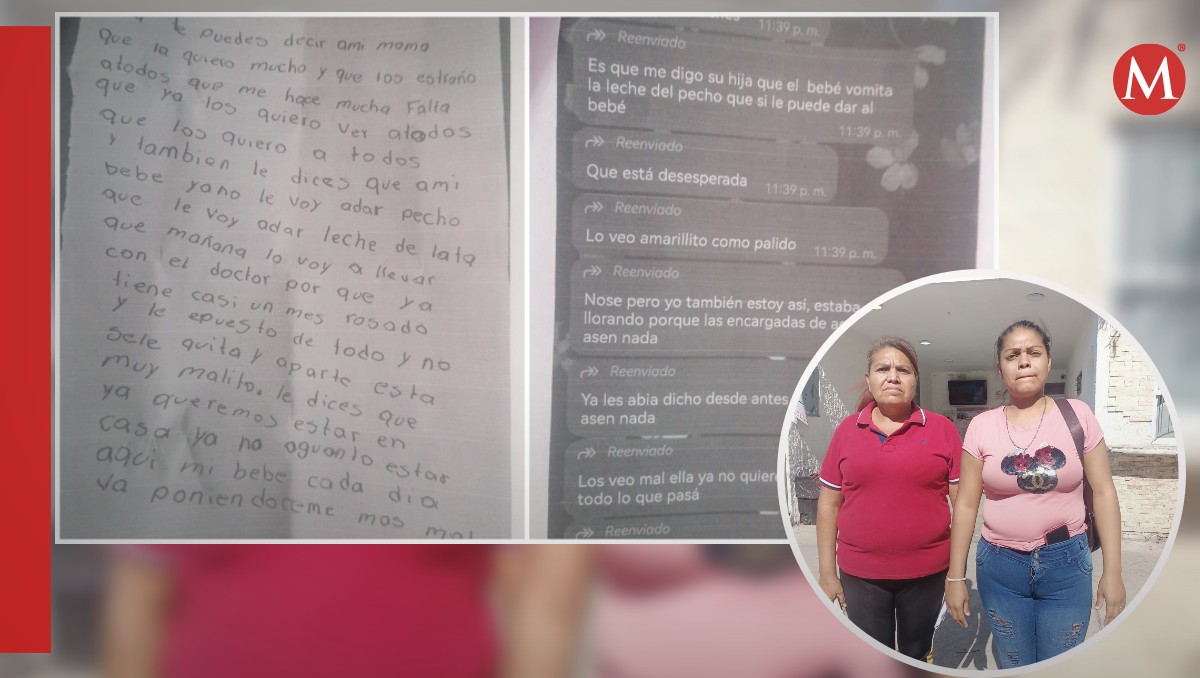 te puedes decir ami mama
que la quiero mucho y que los extraño
atodos que me hace mucha Falta
que ya los quiero ver atodos
que los quiero a todos
y tambien le dices que ami
bebe yano le voy adar pecho
que le voy adar leche de lata
que mañana lo voy a llevar
con el doctor por que ya
tiene casi un mes rosado
y le epuesto de todo y no
sele quita y aparte esta
muy malito. le dices que
ya queremos estar en
casa ya no aguanto estar
aqui mi bebe cada dia
va poniendoceme mas mal
11:39 p. m.
Reenviado
Es que me digo su hija que el bebé vomita
la leche del pecho que si le puede dar al
bebé
11:39 p. m.
Reenviado
Que está desesperada
11:39 p. m.
Reenviado
Lo veo amarillito como palido
11:39 p. m.
Reenviado
Nose pero yo también estoy así, estaba
llorando porque las encargadas de
asen nada
Reenviado
Ya les abia dicho desde antes
asen nada
Reenviado
Los veo mal ella ya no quiere
todo lo que pasá
Reenviado
M